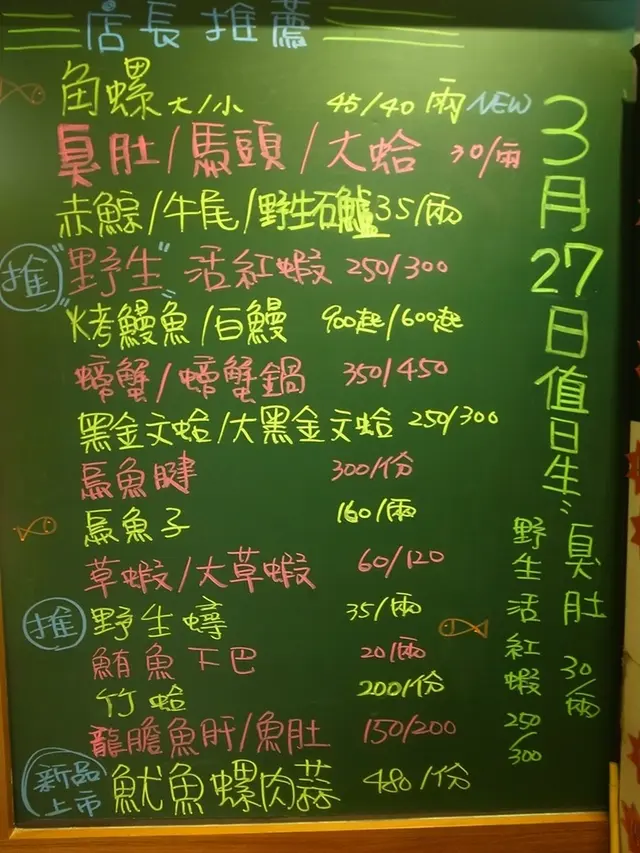 店長推薦
角螺大/小 45/40兩 NEW
臭肚/馬頭/大蛤 30/兩
赤鯮/牛尾/野生石鱸 35/兩
推 "野生"活紅蝦 250/300
烤鰻魚/白鰻 900起/600起
螃蟹/螃蟹鍋 350/450
黑金文蛤/大黑金文蛤 250/300
烏魚腱 300/份
烏魚子 160/兩
草蝦/大草蝦 60/120
推 野生蟳 35/兩
鮪魚下巴 20/兩
竹蛤 200/份
龍膽魚肝/魚肚 150/200
新品上市 魷魚螺肉蒜 480/份
3月27日值日生:
臭肚 30/兩
野生活紅蝦 250/300